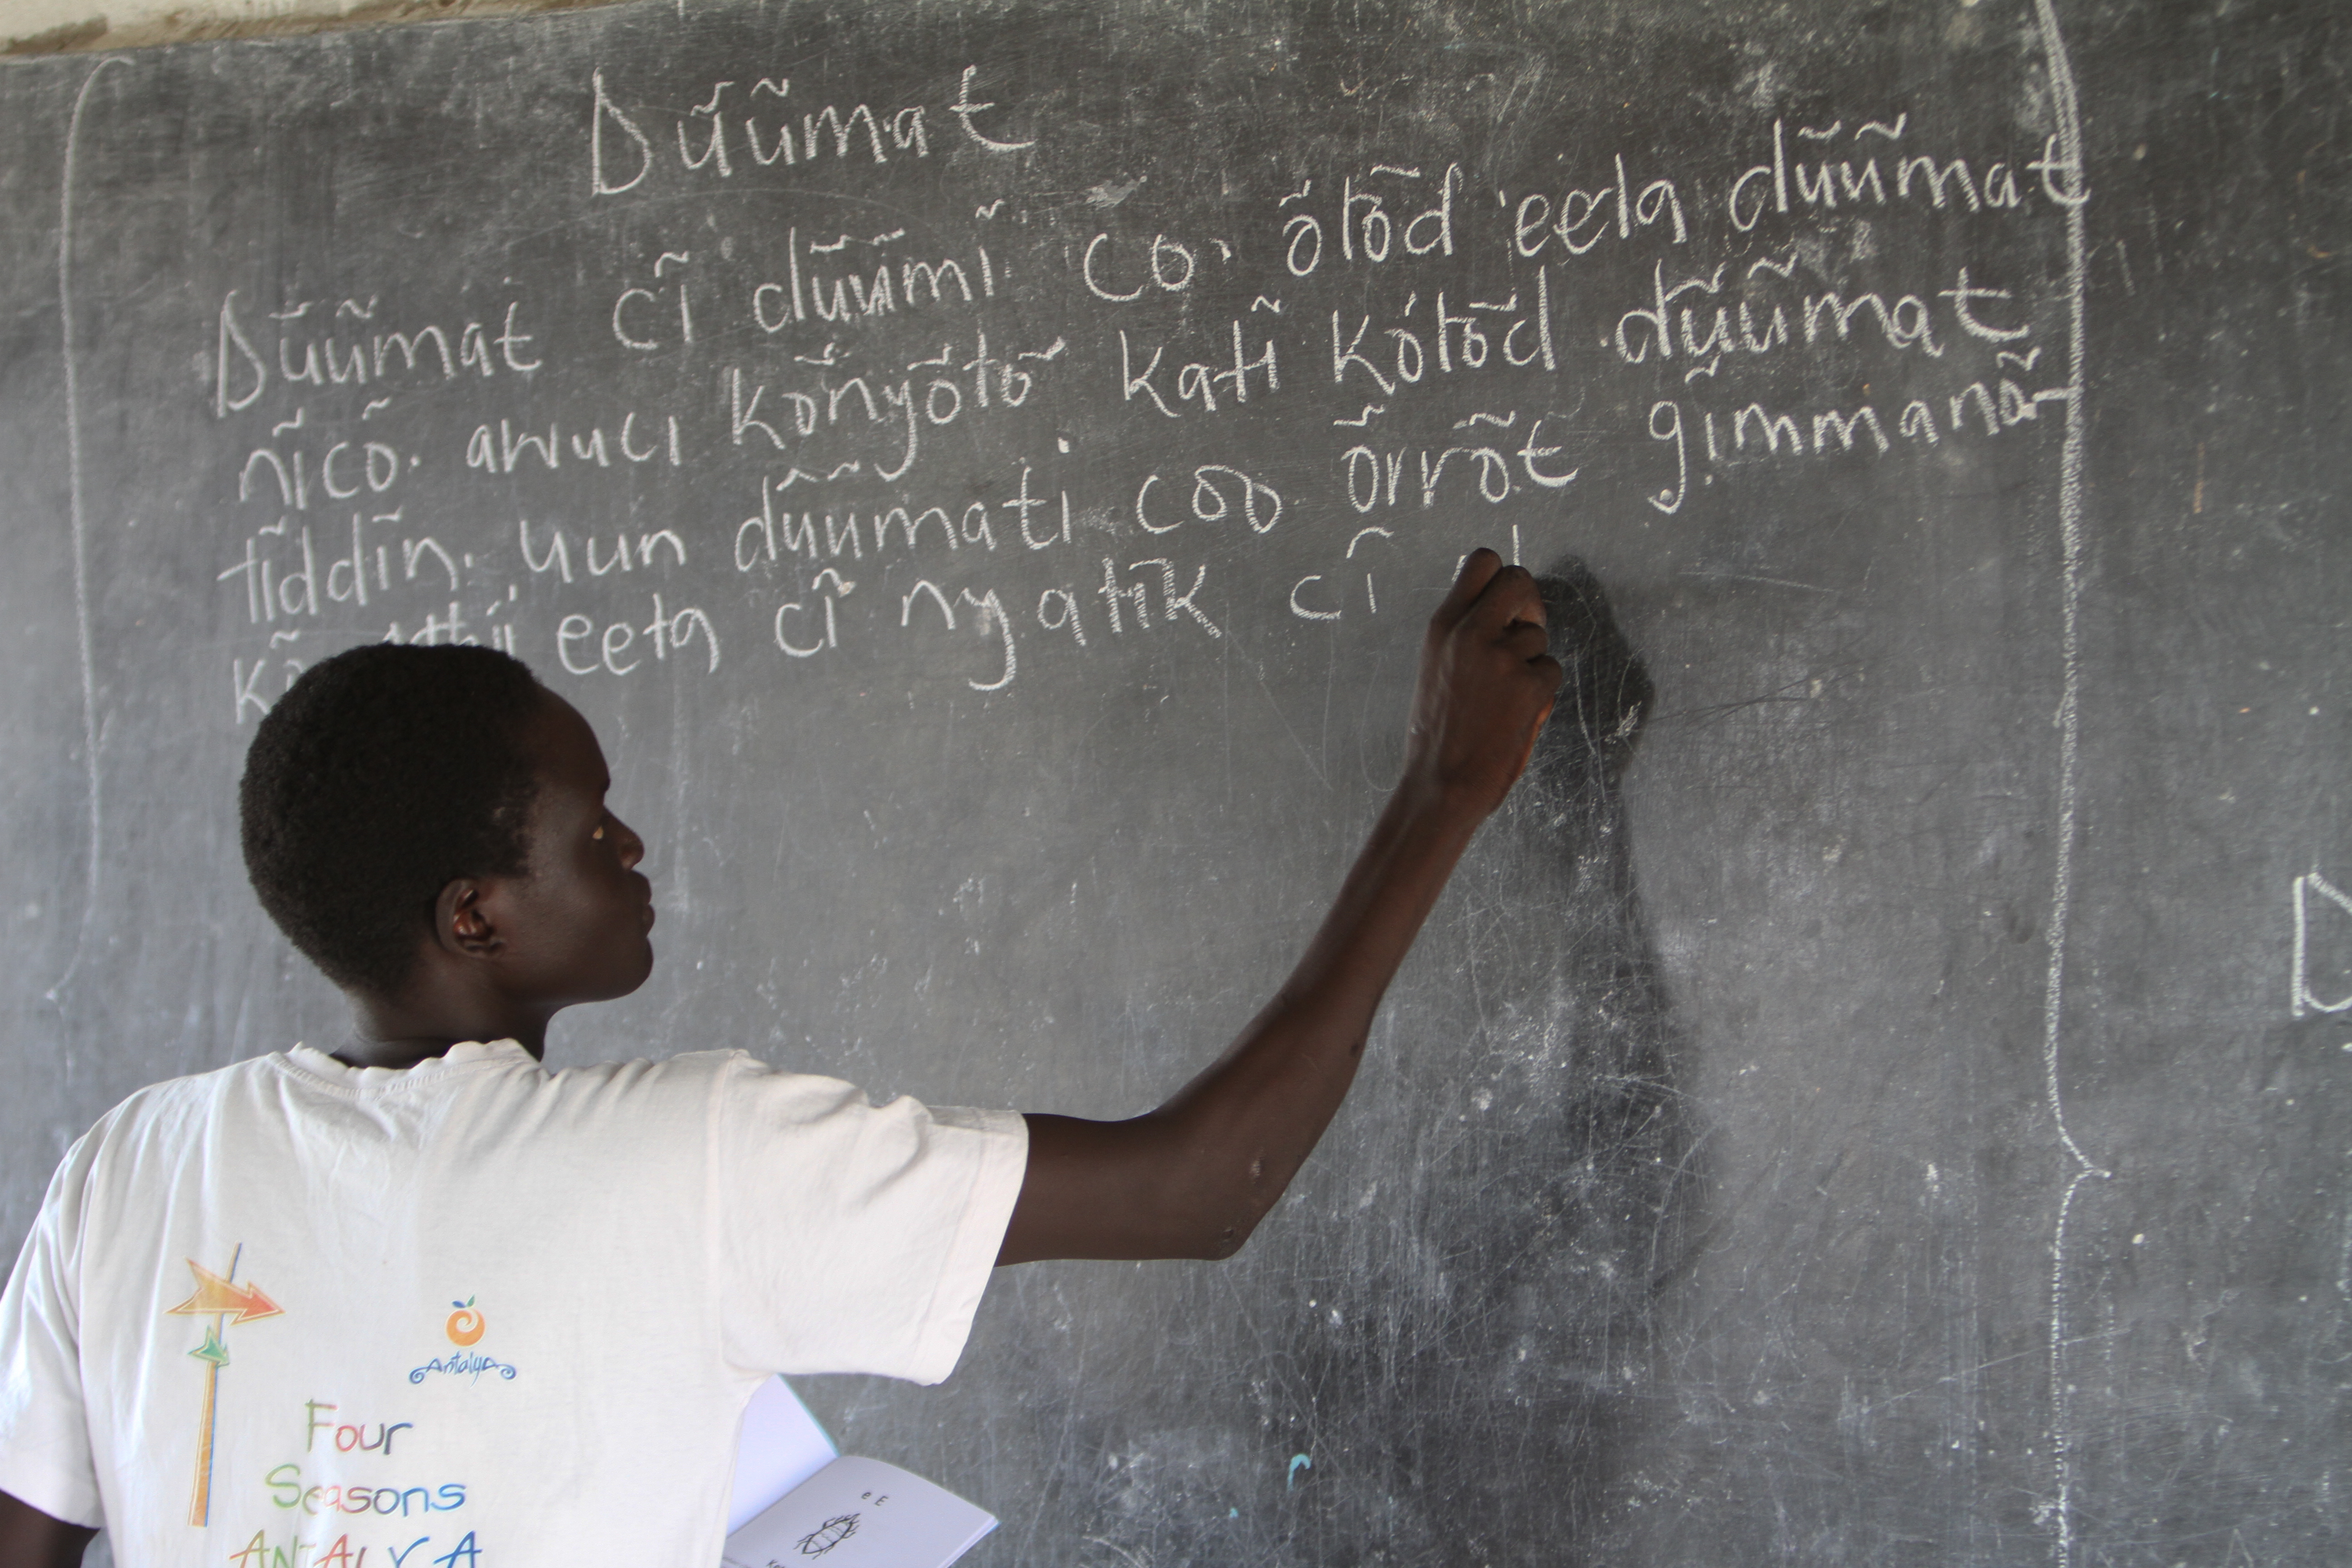 Dũũmat
Dũũmat cĩ dũũmĩ co. õtõd eeta dũũmat
nĩcõ. awuci kõnyõtõ katĩ kõtõd dũũmat
tĩddĩn. yun dũũmati coo õrrõt gĩmmanã
eeta cĩ nyatĩk cĩ
Antalya
Four
Seasons
ANTALYA
e E